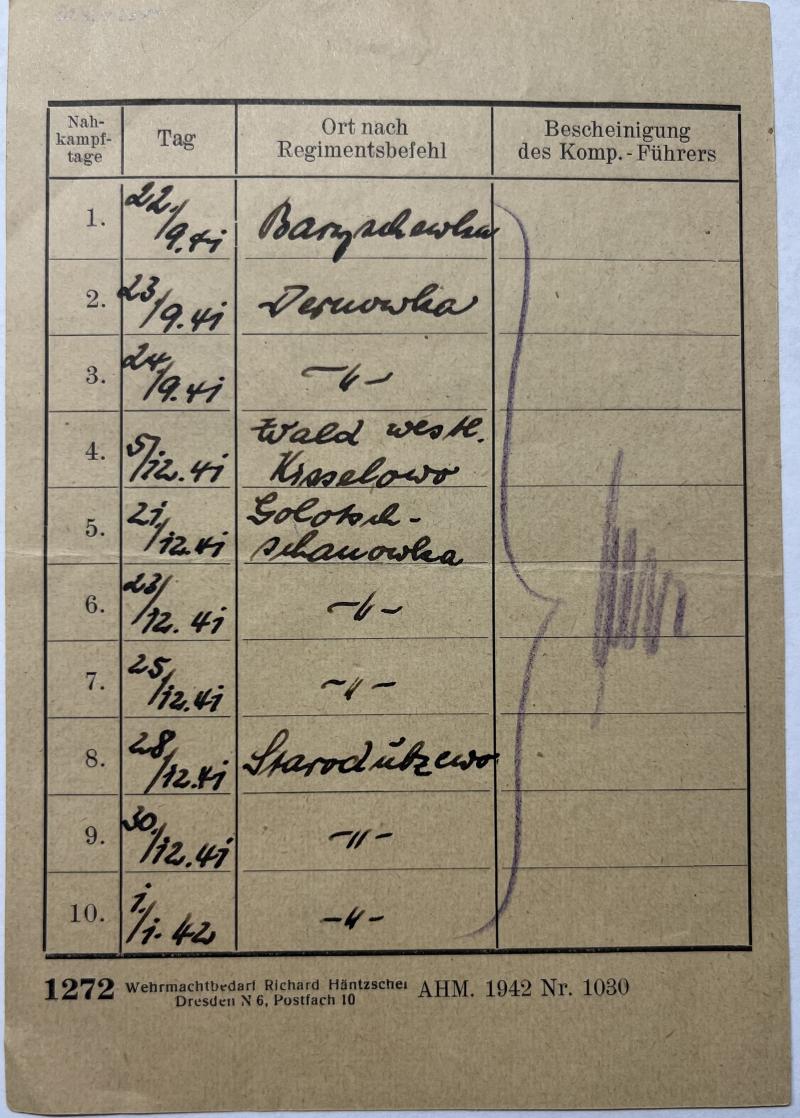 Nah-
kampf-
tage
Tag
Ort nach
Regimentsbefehl
Bescheinigung
des Komp.-Führers
1. 22./9.41 Baryschewka
2. 23/9.41 Dernowka
3. 24./9.41 -"-
4. 5/12.41 Wald westl.
Kisselowo
5. 21/12.41 Golotsch-
schanowka
6. 23/12.41 -"-
7. 25/12.41 -"-
8. 28/12.41 Starodubzewo
9. 30/12.41 -"-
10. 1./1.42 -"-
1272 Wehrmachtbedarf Richard Häntzschel AHM. 1942 Nr. 1030
Dresden N 6, Postfach 10